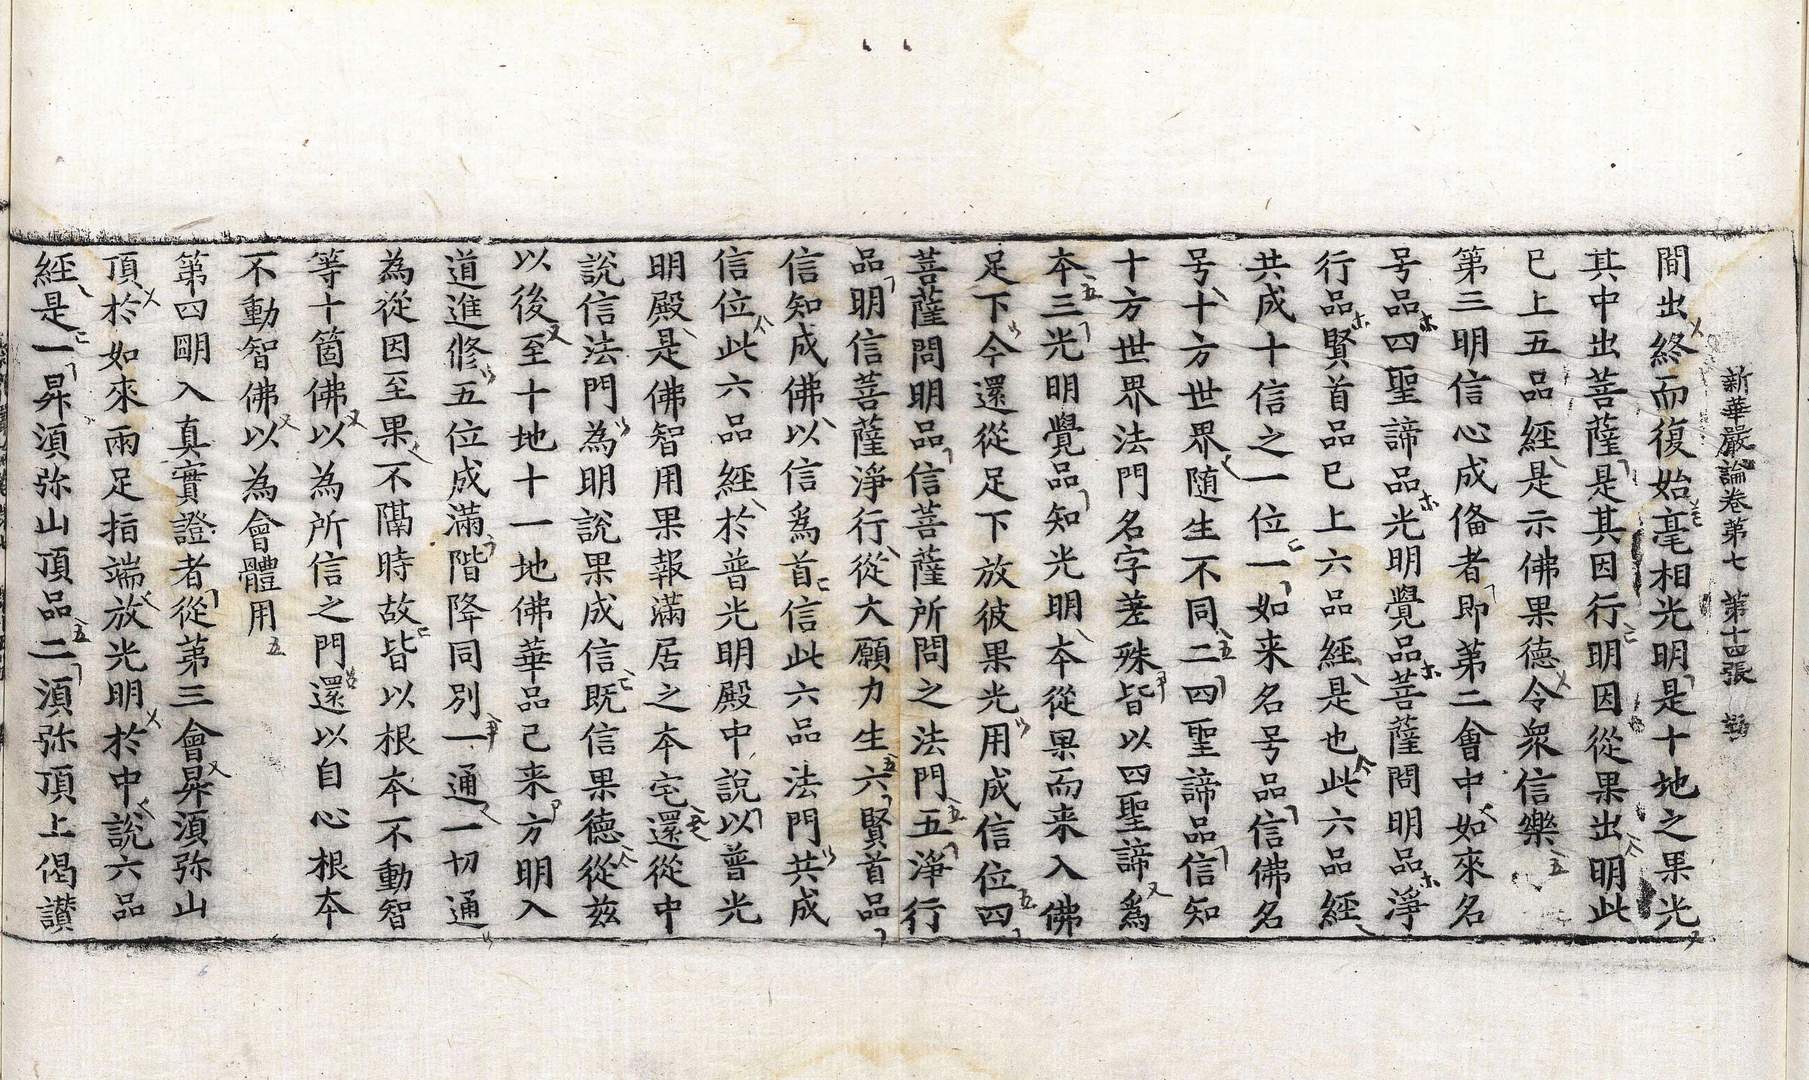 新華嚴論卷第七 第十四張
間出終而復始毫相光明是十地之果光
其中出菩薩是其因行明因從果出明此
已上五品經是示佛果德令衆信樂
第三明信心成俻者即第二會中如來名
号品四聖諦品光明覺品菩薩問明品淨
行品賢首品已上六品經是也此六品經
共成十信之一位一如来名号品信佛名
号十方世界随生不同二四聖諦品信知
十方世界法門名字差殊皆以四聖諦爲
本三光明覺品知光明本從果而来入佛
足下今還從足下放彼果光用成信位四
菩薩問明品信菩薩所問之法門五淨行
品明信菩薩淨行從大願力生六賢首品
信知成佛以信爲首信此六品法門共成
信位此六品經於普光明殿中說以普光
明殿是佛智用果報滿居之本宅還從中
說信法門為明說果成信既信果德從茲
以後至十地十一地佛華品已来方明入
道進修五位成滿階降同別一通一切通
為從因至果不隔時故皆以根本不動智
等十箇佛以為所信之門還以自心根本
不動智佛以為會體用
第四明入真實證者從第三會昇須弥山
頂於如來兩足指端放光明於中說六品
經是一昇須弥山頂品二須弥頂上偈讃